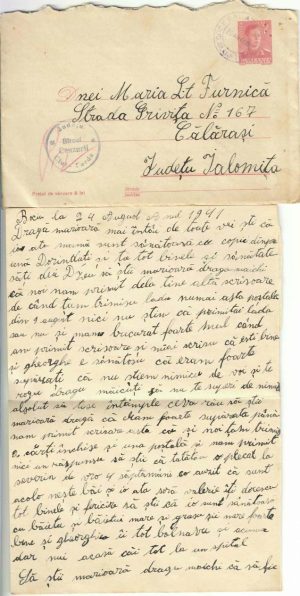 Dnei Maria Lt Furnică
Strada Grivița No 167
Călărași
Județu Ialomița
Biroul
Cenzurii
Prețul de vânzare 8 lei
la 24 August Anul 1941
Draga marioară mai întâiu de toate vei ști că
eu ata mumă sunt sănătoasă ca copiii dinpre
ună Dorindati și ta tot binele și sănătate
săți dea Dzeu să știi marioară draga maichi
că noi nam primit dela tine altă scrisoare
de când team trimisu lada numai asta postala
din 1 august nici nu știu ca primitai lada
sau nu și mam bucurat foarte mul când
am primit scrisoarea si miai scrisu că esti bine
și gheorghe e sănătosu că eram foarte
supărată că nu știem nimica de voi și te
rogu draga măicuți să nu te superi de nimic
absolut să lase întâmple ceva rău să știi
marioară dragă că eram foarte supărată până
nam primit scrisoarea asta că și noi team trimis
2 cărți închise și una postală si nam primit
nici un raspunsu să sti că tătatu o plecal la
severin de vro 4 săptămâni cu auzit că sunt
acolo nește băi și io ata soră valerie îți dorescu
tot binele și fericire să sti că io sunt sănătoasă
cu băiatu și băietul mare și grasu sie mare foarte
bine și gheorghe îi tot bolnavu și acuma
dar nui acasă căi tot la un spital
Să știi marioară draga maichi că